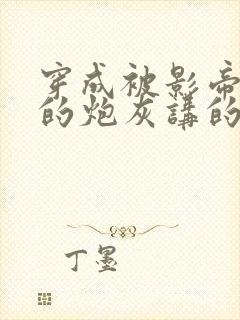 穿成被影帝
的炮灰講的
丁墨